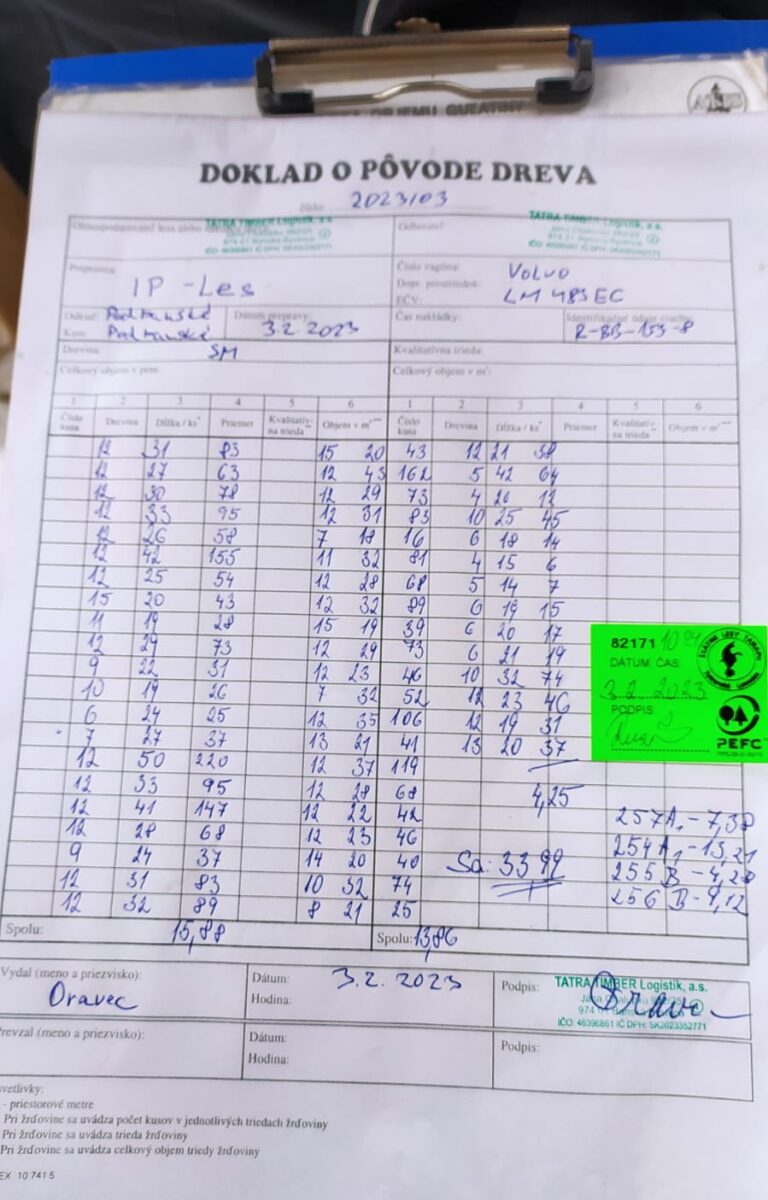 OBJEMU GUĽATINY
DOKLAD O PÔVODE DREVA
číslo: 2023/03
TATRA TIMBER Logistik, a.s.
TATRA TIMBER Logistik, a.s.
Odberateľ
Prepravca: IP - Les
Číslo vagóna: VOLVO
Dopr. prostriedok:
EČV: LM 483EC
Odkiaľ:
Kam:
Dátum prepravy: 3.2.2023
Čas nakládky:
Identifikačné údaje R-BB-153-8
Drevina SM
Kvalitatívna trieda:
Celkový objem v prm:
Celkový objem v m³:
1 2 3 4 5 6 1 2 3 4 5 6
Číslo kusa Drevina Dĺžka / ks* Priemer Kvalitatívna trieda** Objem v m³*** Číslo kusa Drevina Dĺžka / ks* Priemer Kvalitatívna trieda** Objem v m³***
12 31 83 15 20 43 12 21 38
12 27 63 12 43 162 5 42 64
12 30 78 12 29 73 4 20 12
12 33 95 12 31 83 10 25 45
12 26 58 7 18 16 6 18 14
12 42 155 11 32 81 4 15 6
12 25 54 12 28 68 5 14 7
15 20 43 12 32 89 6 19 15
11 19 28 15 19 39 6 20 17
12 29 73 12 29 73 6 21 19
9 22 31 12 23 46 10 32 74
10 19 26 7 32 52 12 23 46
6 24 25 12 35 106 12 19 31
7 27 37 13 21 41 13 20 37
12 50 220 12 37 119
12 33 95 12 28 68 4,25
12 41 147 12 22 42
12 28 68 12 23 46
9 24 37 14 20 40 Sa: 33 99
12 31 83 10 32 74
12 32 89 8 21 25
257A1 - 7,38
254A1 - 13,21
255 B - 4,28
256 B - 9,12
82171
DÁTUM: ČAS:
3.2.2023
PODPIS:
PEFC
Spolu: 15,88
Spolu: 13,86
Vydal (meno a priezvisko):
Oravec
Dátum: 3.2.2023
Hodina:
Podpis:
TATRA TIMBER Logistik, a.s.
IČO: 46396861 IČ DPH: SK2023352771
Prevzal (meno a priezvisko):
Dátum:
Hodina:
Podpis:
svetlivky:
- priestorové metre
Pri žrďovine sa uvádza počet kusov v jednotlivých triedach žrďoviny
Pri žrďovine sa uvádza trieda žrďoviny
Pri žrďovine sa uvádza celkový objem triedy žrďoviny
EX 10 741 5